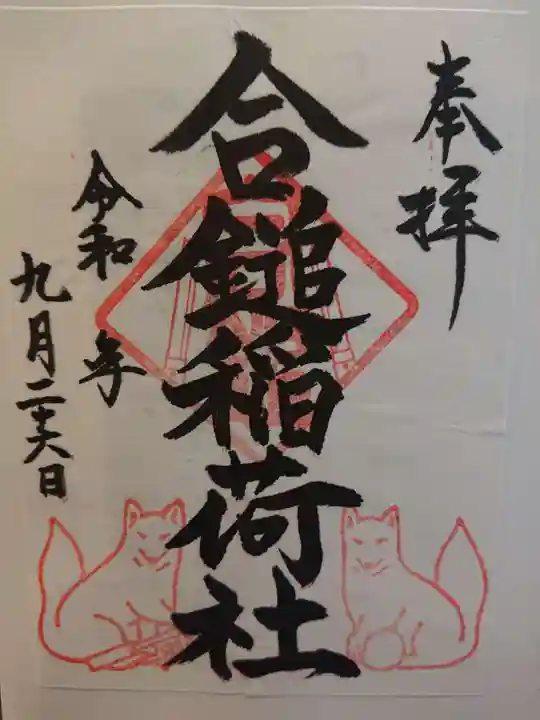 奉拝
合鎚稲荷社
令和 年
九月二十六日